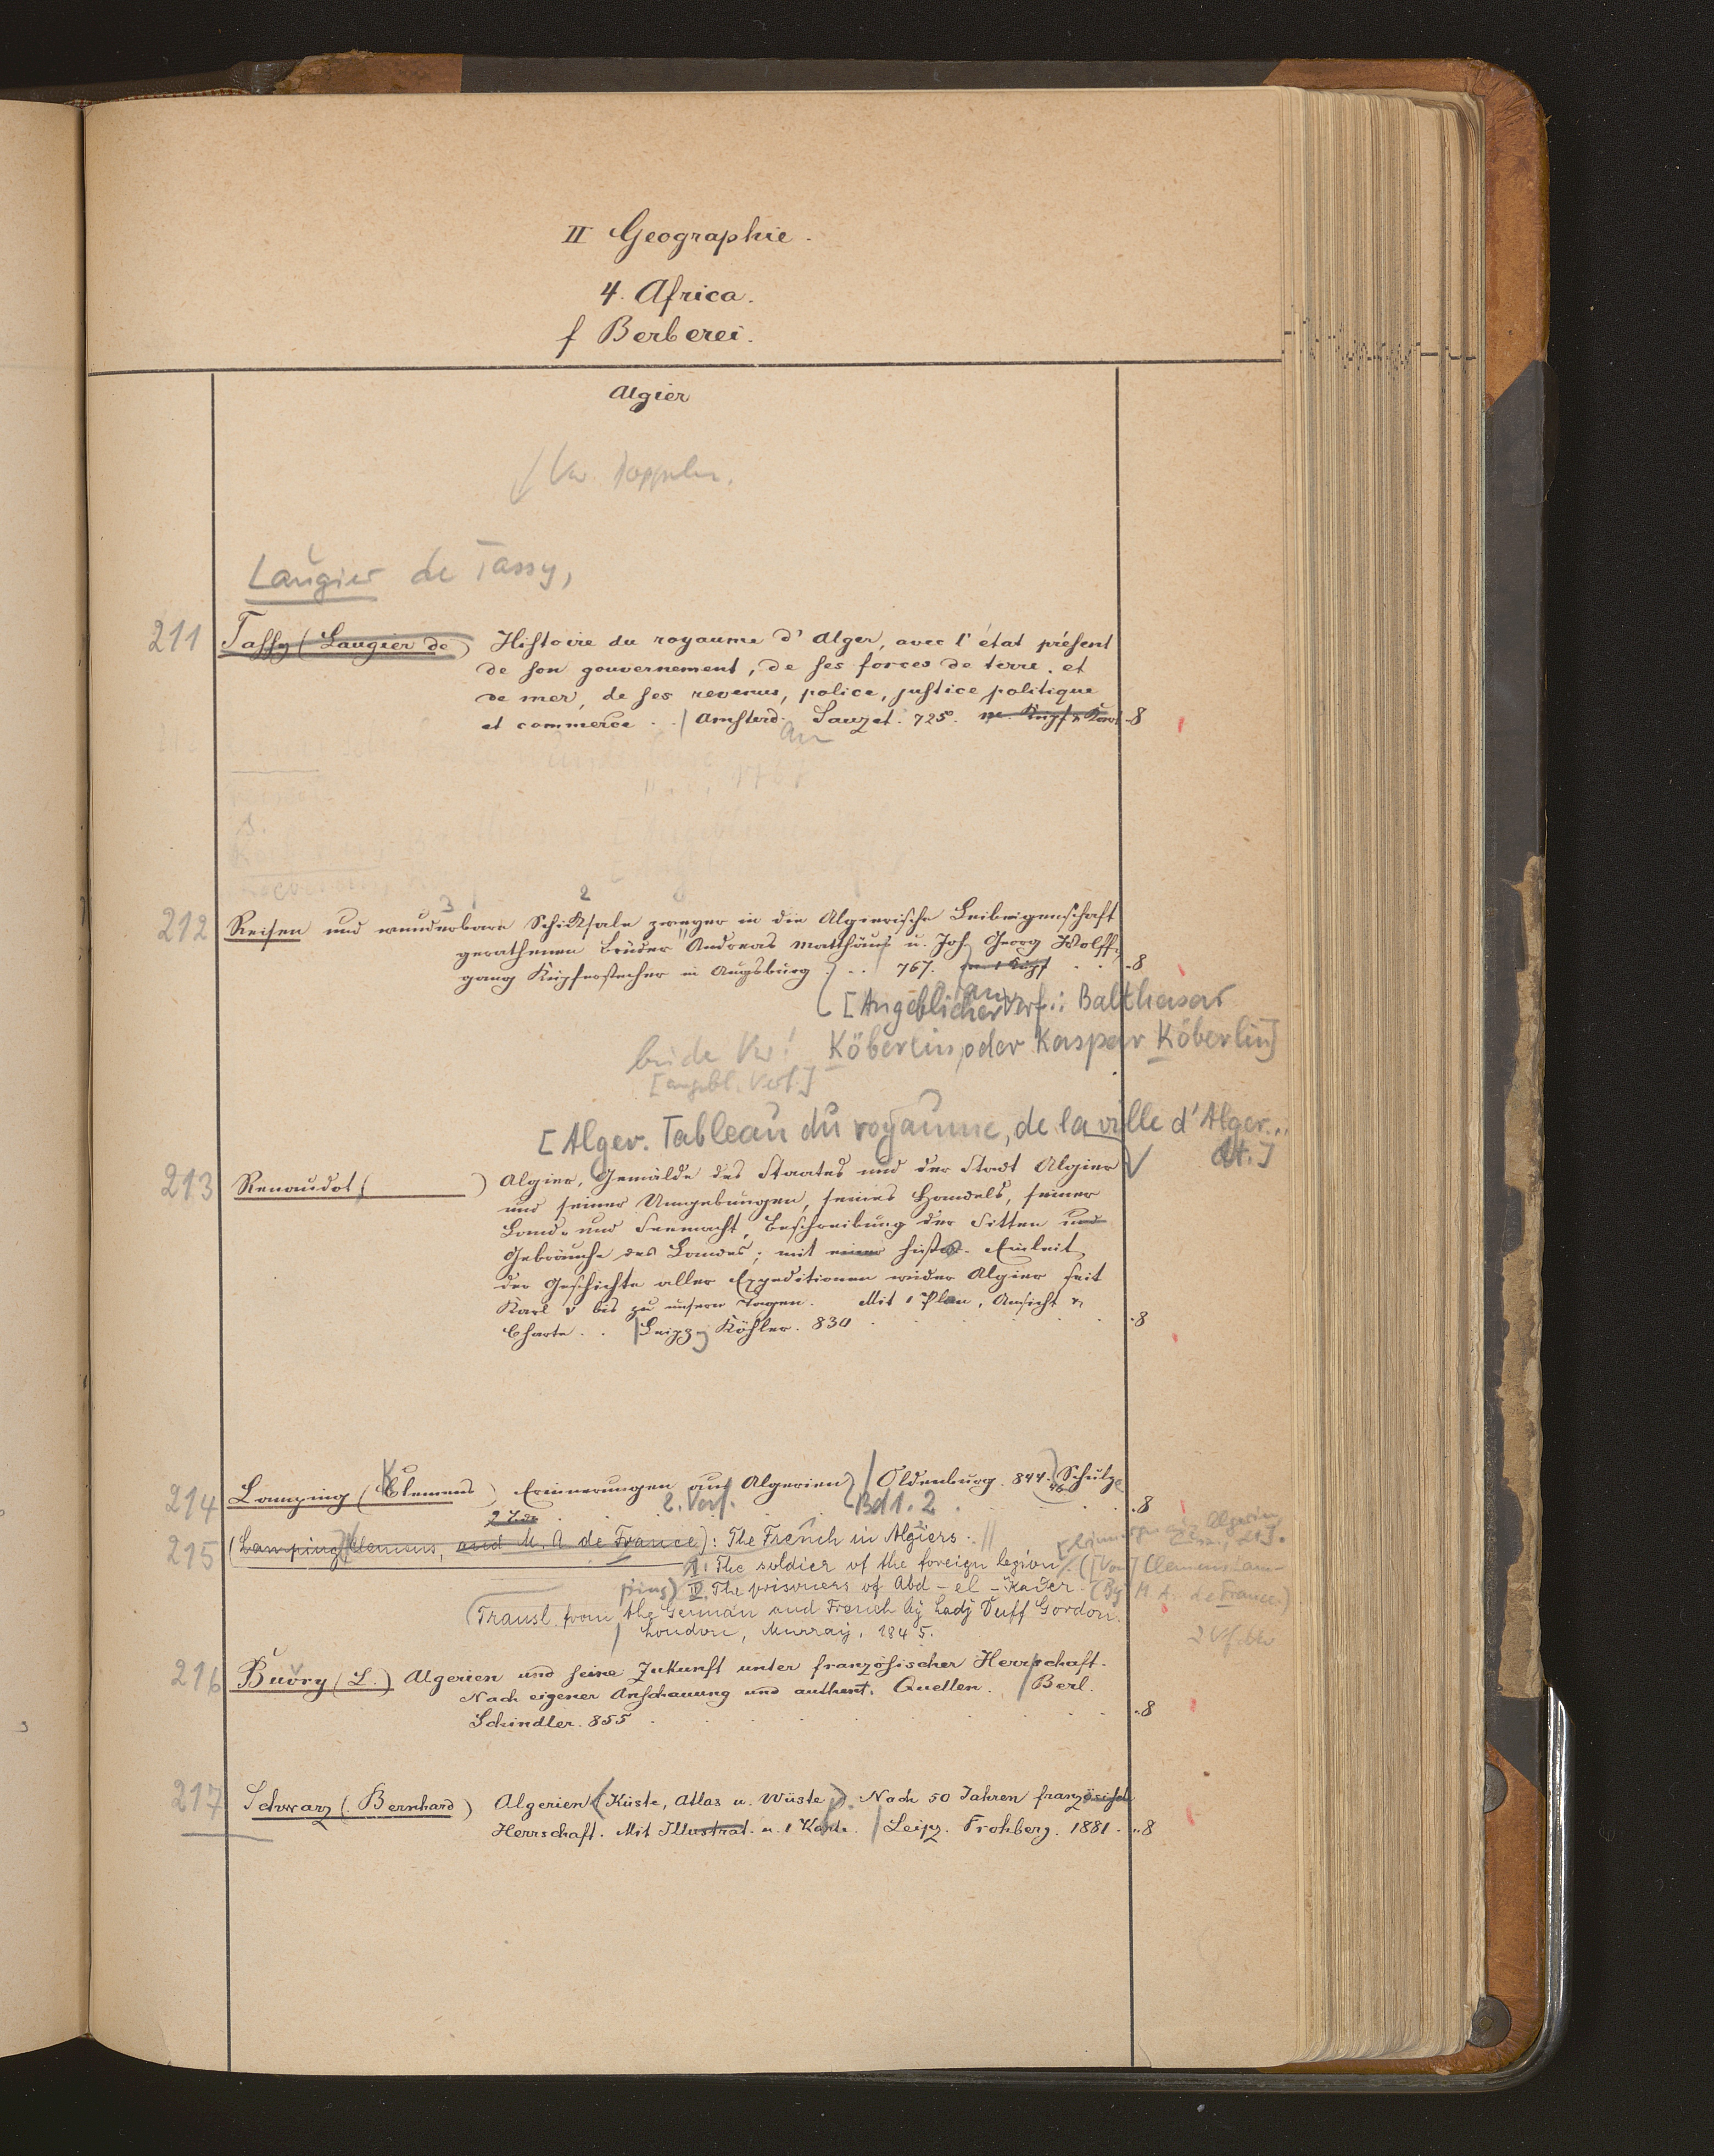 II Geographie.
4. Africa.
f Berberei.
Algier
Vw. Doppeln.
Laugier de Tassy,
211 Tassy (Laugier de) Histoire du royaume d'Alger, avec l'état présent
de son gouvernement, de ses forces de terre. et
de mer, de ses revenus, police, justice politique
et commerce . . / Amsterd. Sauzet. 725. m. Kupf. u. Kart. 8
an
3 2
212 Reisen und wunderbare Schiksale zweyer in die Algierische Leibeigenschaft
gerathenen Brüder Andreas Matthäus u. Joh Georg Wolff-
gang Kupferstecher in Augsburg. .. 767. m 1 Kupf . . 8
an
[Angeblicher Verf.: Balthasar
beide Vw! Köberlin, oder Kaspar Köberlin]
[angebl. Verf.]
[Alger. Tableau du royaume, de la ville d'Alger...
dt.]
213 Renaudot ( ) Algier, Gemälde des Staates und der Stadt Algier
und seiner Umgebungen, seines Handels, seiner
Land- und Seemacht, Beschreibung der Sitten und
Gebräuche des Landes; mit einer histor. Einleit.
der Geschichte aller Expeditionen wider Algier seit
Karl V bis zu unsern Tagen. Mit 1 Plan, Ansicht u.
Charte . . / Leipzig Köhler. 830 . . . 8
214 Lamping (Clemens) Erinnerungen aus Algerien / Oldenburg. 844. Schulze
2 Thle 2. Verf. Bd 1. 2 . . 8
215 (Lamping) Clemens, and M. A de France): The French in Algiers. //
I: The soldier of the foreign legion. ([Von] Clemens Lam-
ping) II. The prisoners of Abd-el-Kader. (By M. A. de France.)
(Transl. from the German and French by Lady Duff Gordon.
/ London, Murray, 1845.
216 Buvry (L.) Algerien und seine Zukunft unter französischer Herrschaft.
Nach eigener Anschauung und authent. Quellen. / Berl.
Schindler. 855 . . . 8
217 Schwarz (Bernhard) Algerien (Küste, Atlas u. Wüste). Nach 50 Jahren französisch
Herrschaft. Mit Illustrat. u. 1 Karte. / Leipz. Frohberg. 1881. 8